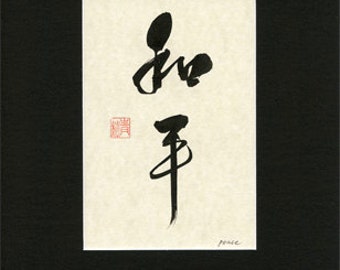 和
平
peace